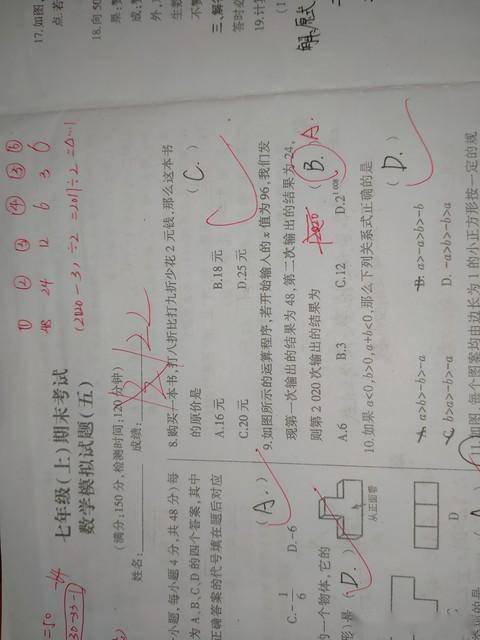 17.如图
点.若
18.向50
三、解答
答时必
19.计算
解:原式
① ② ③ ④ ③ ⑥
48 24 12 6 3 6
(2020-3)÷2=2017÷2=
七年级(上)期末考试
数学模拟试题(五)
(满分:150分,检测时间:120分钟)
姓名: 成绩:
小题,每小题4分,共48分)每
为A、B、C、D的四个答案,其中
正确答案的代号填在题后对应
(A.)
C.-1/6 D.-6
的一个物体,它的
形)是 (D.)
从正面看
D
8.购买一本书,打八折比打九折少花2元钱,那么这本书
的原价是 (C.)
A.16元 B.18元
C.20元 D.25元
9.如图所示的运算程序,若开始输入的x值为96,我们发
现第一次输出的结果为48,第二次输出的结果为24,
则第2 020次输出的结果为 (B.) A.
2020
A.6 B.3 C.12
10.如果a<0,b>0,a+b<0,那么下列关系式正确的是
(D.)
A.a>b>-b>-a B.a>-a>b>-b
C.b>a>-b>-a D.-a>b>-b>a
11.如图,每个图案均由边长为1的小正方形按一定的规